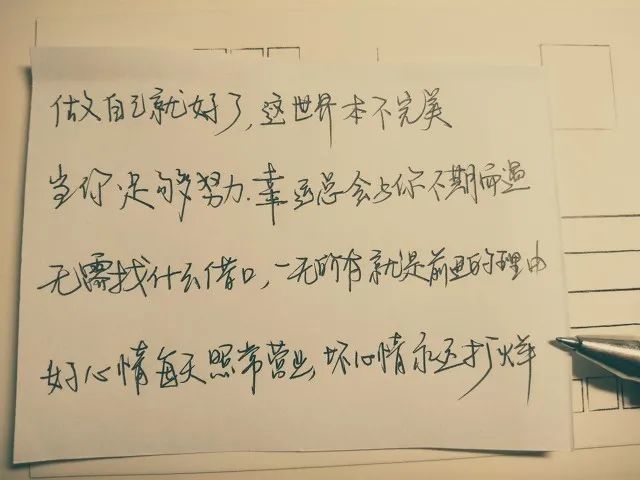 做自己就好了,这世界本不完美
当你足够努力.幸运总会与你不期而遇
无需找什么借口,一无所有就是前进的理由
好心情每天照常营业,坏心情永远打烊